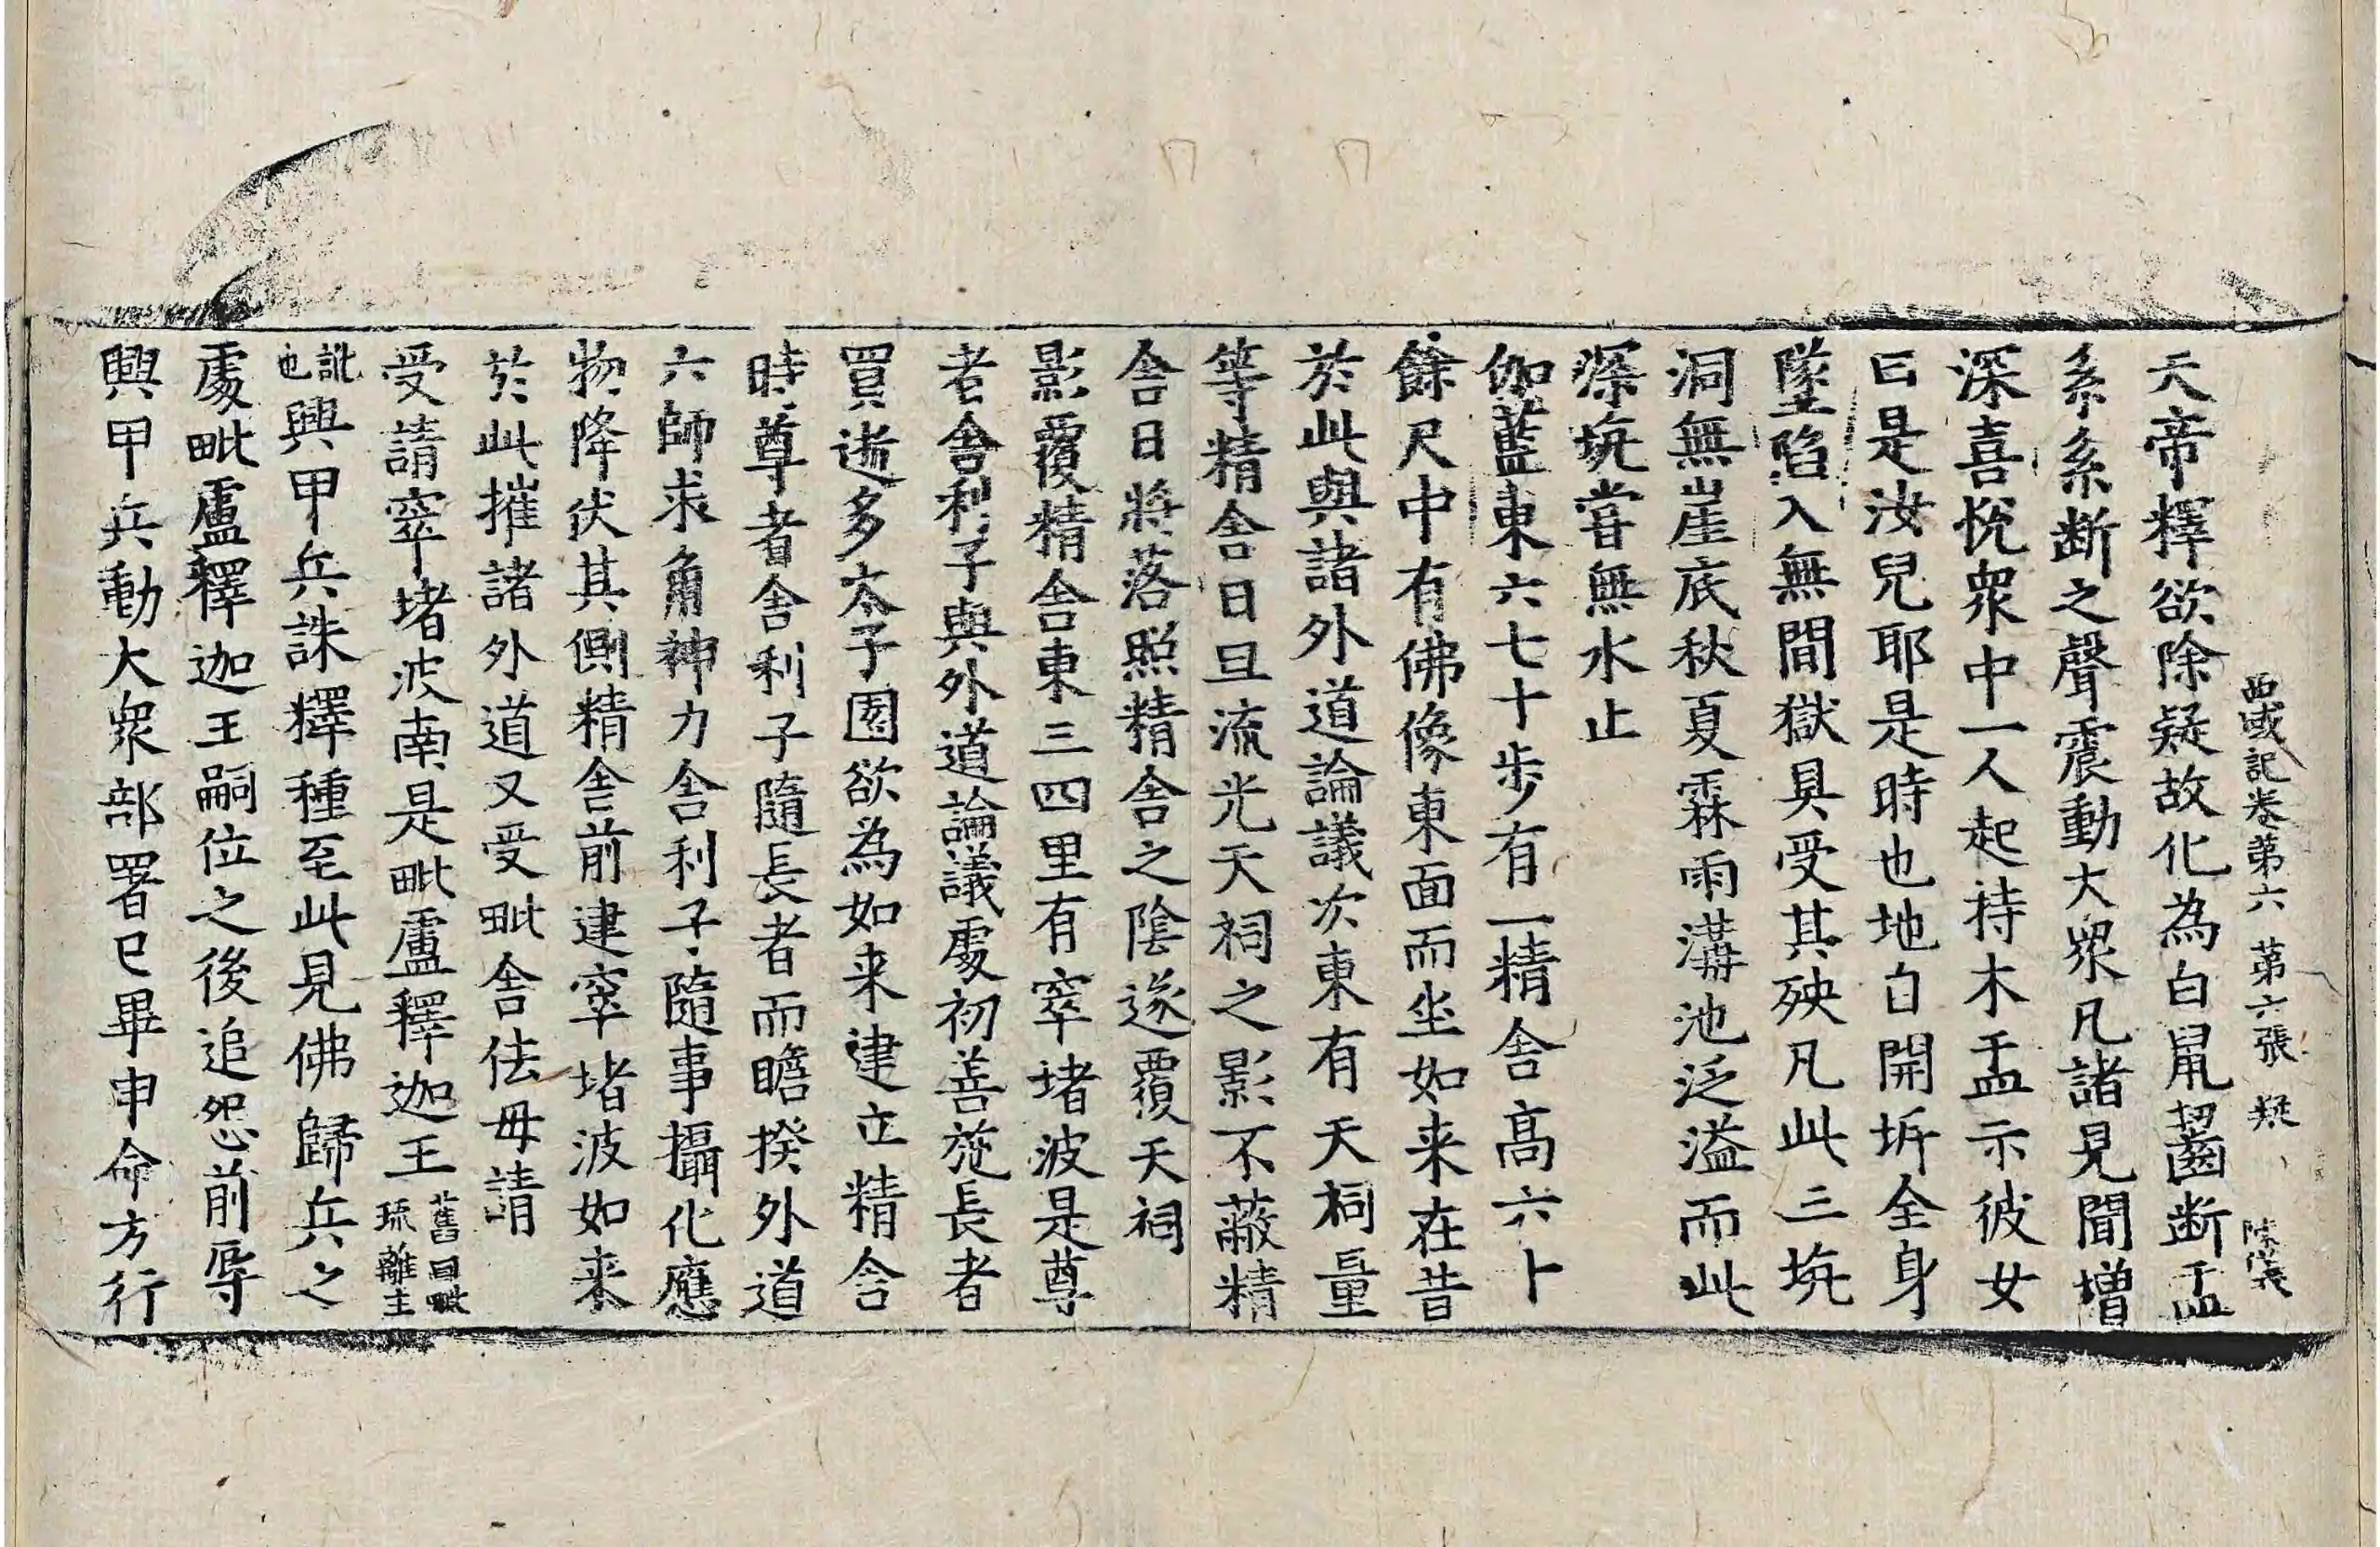 西域記卷第六 第六張 疑
天帝釋欲除疑故化為白鼠齧断盂
系系断之聲震動大衆凡諸見聞增
深喜恱衆中一人起持木盂示彼女
曰是汝兒耶是時也地自開坼全身
墜陷入無間獄具受其殃凡此三坑
洞無崖底秋夏霖雨溝池泛溢而此
深坑嘗無水止
伽藍東六七十步有一精舍髙六卜
餘尺中有佛像東面而坐如来在昔
於此與諸外道論議次東有天祠量
等精舍日旦流光天祠之影不蔽精
舍日將落照精舍之陰遂覆天祠
影覆精舍東三四里有窣堵波是尊
者舍利子與外道論議處初善施長者
買逝多太子園欲為如来建立精舍
時尊者舍利子隨長者而瞻揆外道
六師求角神力舍利子隨事攝化應
物降伏其側精舍前建窣堵波如来
於此摧諸外道又受毗舍佉母請
受請窣堵波南是毗盧釋迦王舊曰毗琉離王
訛也興甲兵誅釋種至此見佛歸兵之
處毗盧釋迦王嗣位之後追怨前辱
興甲兵動大衆部署已畢申命方行